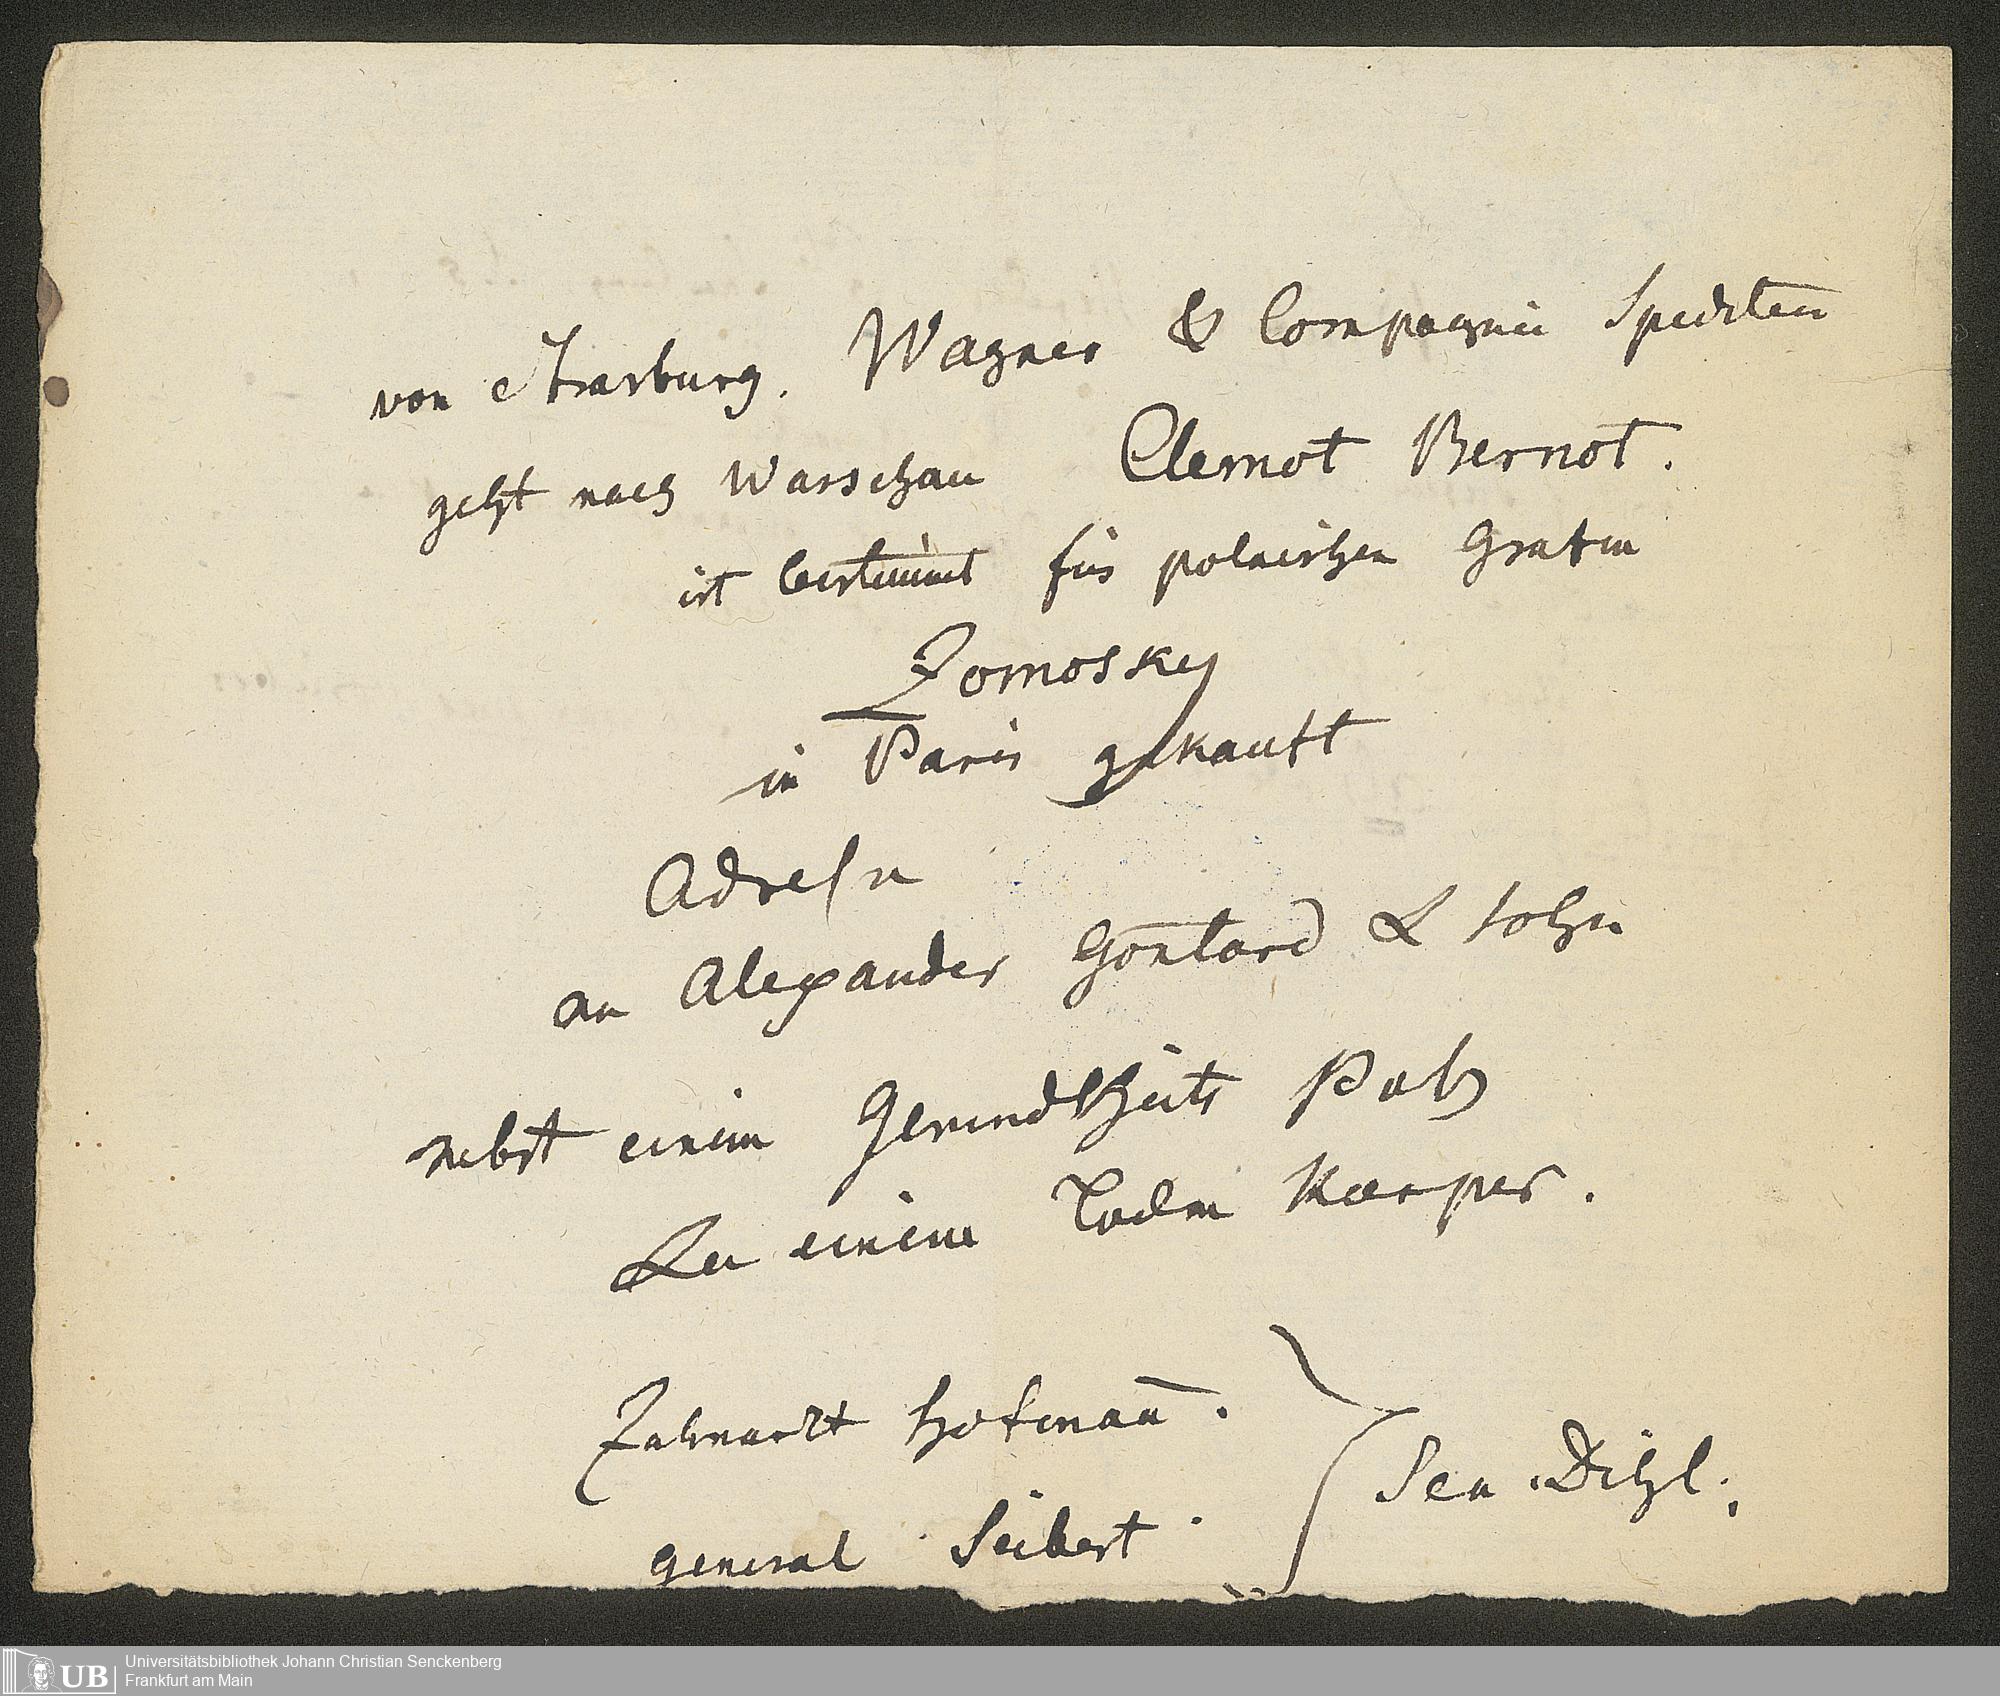 von Strasburg. Wagner & Compagnie Spediteur
geht nach Warschau Clemot Bernot.
ist bestimmt für polnischen Grafen
Zomosky
in Paris gekauft
Adresse
an Alexander Gontard & Sohn
nebst einem Gesundtheits Paß
zu einem Todten Kærper.
Zahnarzt Hofmann.
general Seibert
Sen. Dihl.
UB Universitätsbibliothek Johann Christian Senckenberg
Frankfurt am Main